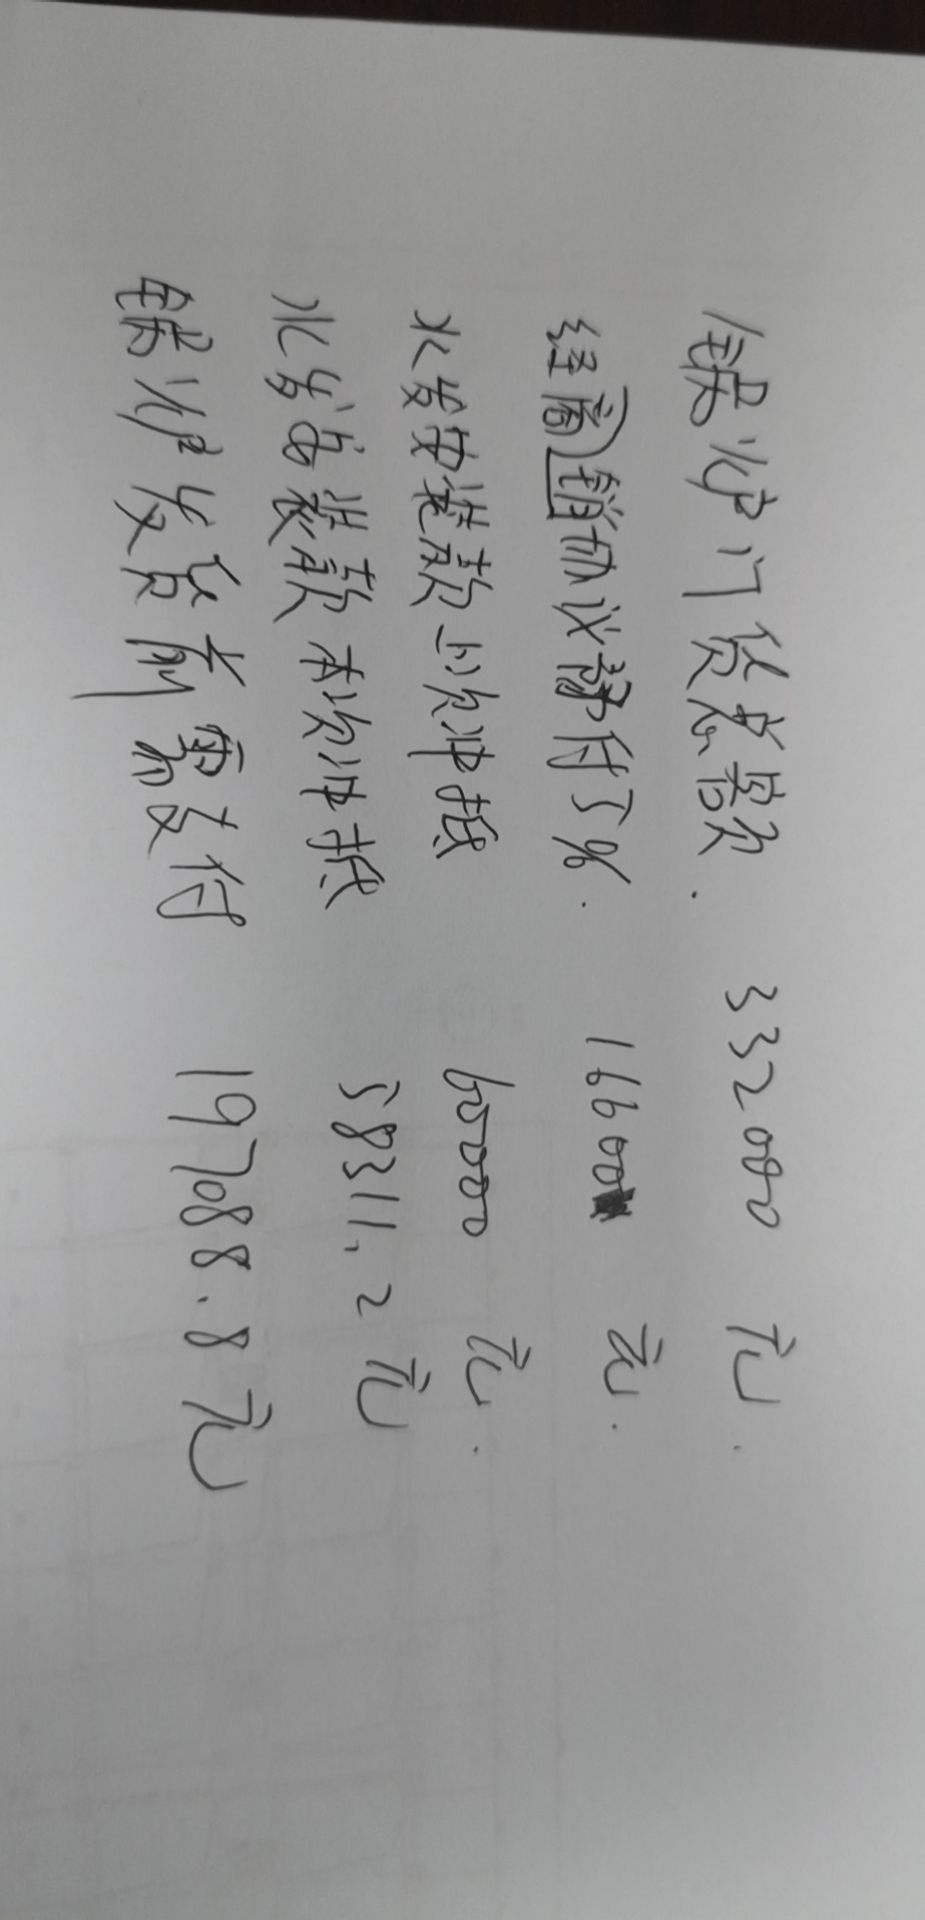 锅炉订货总额. 332000 元.
经商销协议预付5%. 16600 元.
水发安装款上次冲抵 60000 元.
水发 装款本次冲抵 58311.2 元
锅炉发货前需支付 197088.8 元